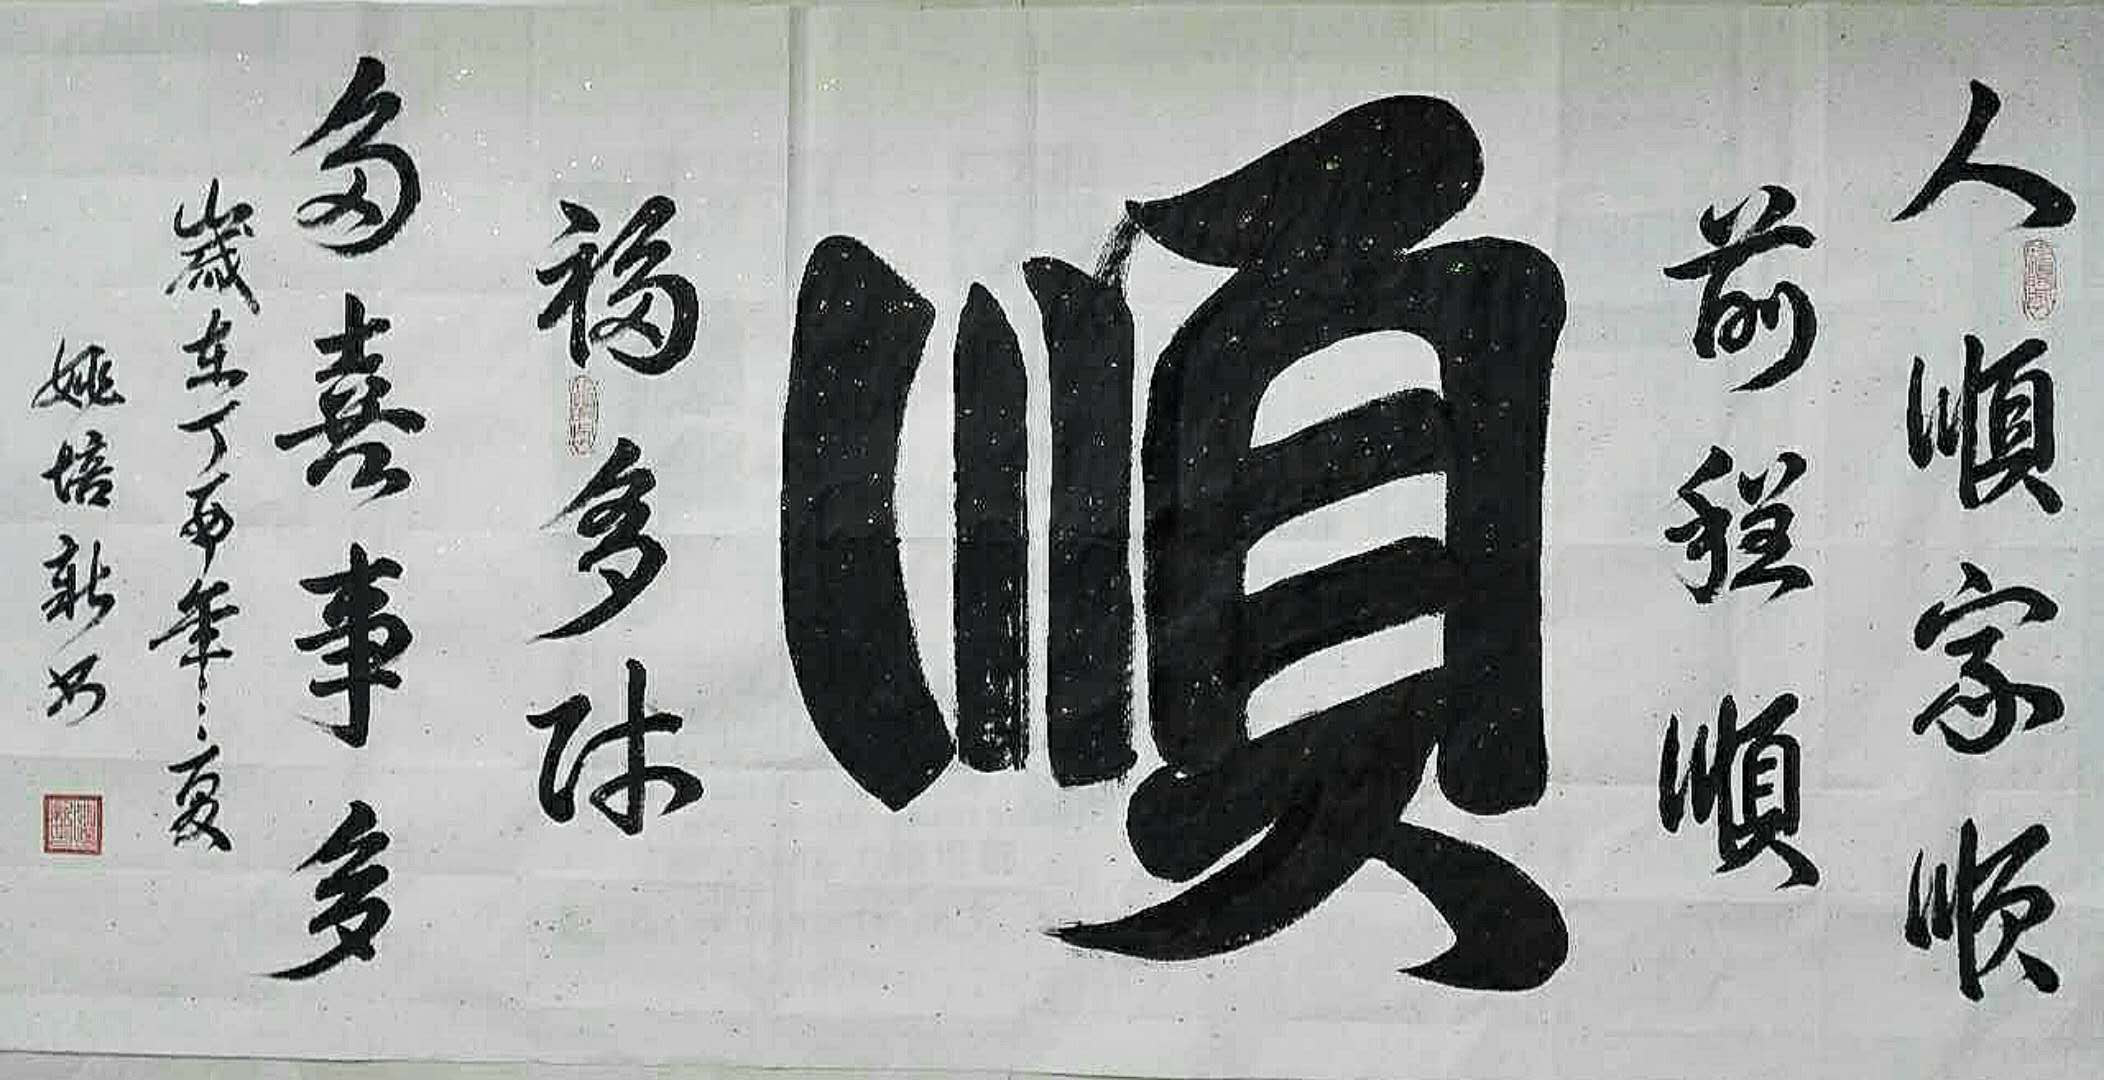 人順家顺
前程順
順
福多财
多喜事多
歲在丁酉年之夏
姚培新书